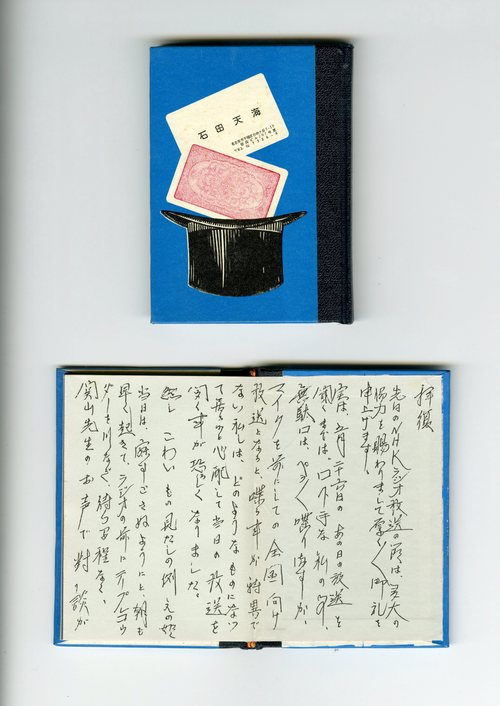 石田天海
拝復
先日のNHKラジオ放送の節は、多大の
協力を賜わりまして厚く〱御礼を
申上げます。
実は、五月二十 日のあの日の放送を
聞くまでは、口下手な私の事、
無駄口は、ペラ〱喋りますが、
マイクを前にしての全国向け
放送となると、喋る事が特異で
ない私しは、どのようなものになつ
て居るかと心配して当日の放送を
聞く事が恐ろしくなりました。
然し こわいもの見たしの例えの如
当日は、寝すごさぬようにと、朝も
早く起きて、ラジオの前にテープレコウ
ダーを など、待つ 程なく、
関山先生のお声で対 談が